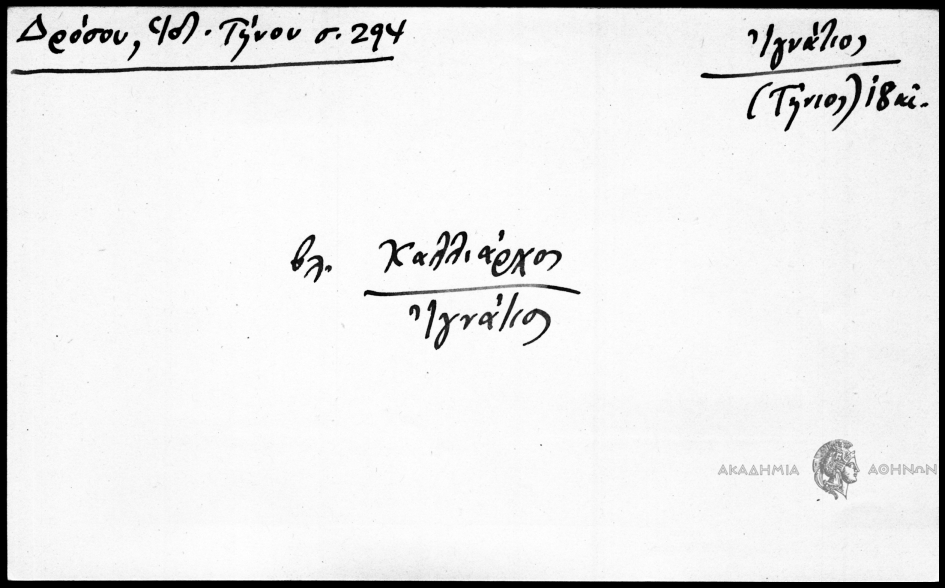 Δρόσου, Ἱστ. Τήνου σ. 294
Ἰγνάτιος
(Τήνιος) 18 αἰ.
βλ. Καλλιάρχος
Ἰγνάτιος
ΑΚΑΔΗΜΙΑ ΑΘΗΝΩΝ